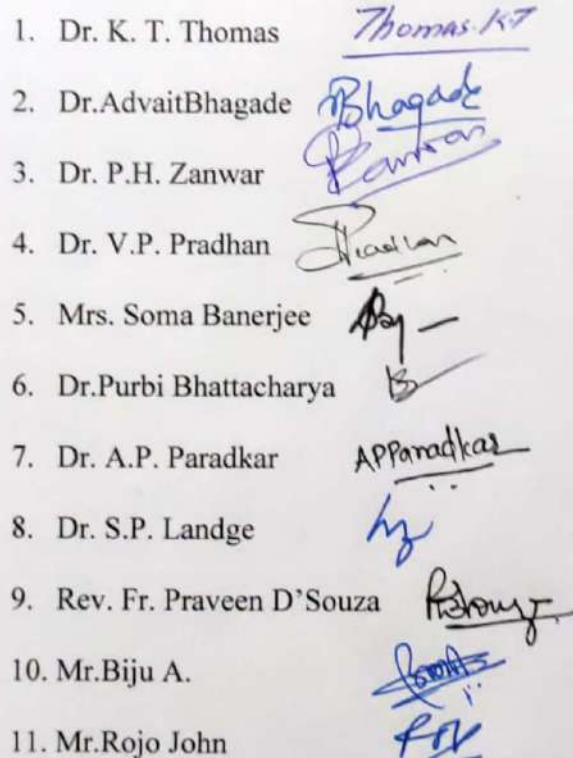 1. Dr. K. T. Thomas Thomas K T
2. Dr.AdvaitBhagade Bhagade
3. Dr. P.H. Zanwar
4. Dr. V.P. Pradhan Pradhan
5. Mrs. Soma Banerjee
6. Dr.Purbi Bhattacharya
7. Dr. A.P. Paradkar APParadkar
8. Dr. S.P. Landge
9. Rev. Fr. Praveen D’Souza
10. Mr.Biju A.
11. Mr.Rojo John